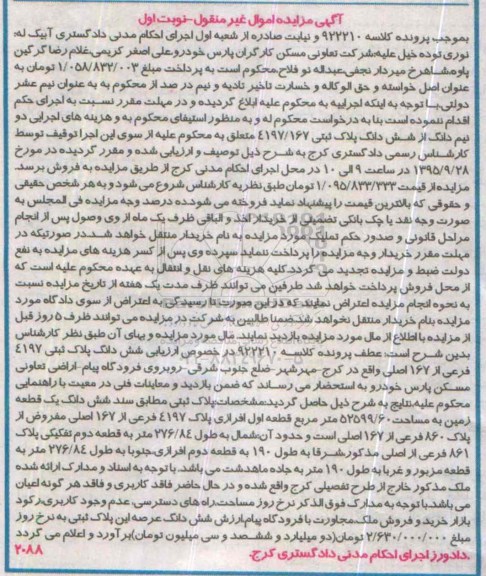 آگهی مزایده اموال غیر منقول-نوبت اول
بموجب پرونده کلاسه ۹۲۲۲۱۰ و نیابت صادره از شعبه اول اجرای احکام مدنی دادگستری آبیک له:
نوری توده خیل علیه:شرکت تعاونی مسکن کارگران پارس خودرو،علی اصغر کریمی،غلام رضا گرگین
پاوه،شاهرخ میردار نجفی،عبداله تو فلاح،محکوم است به پرداخت مبلغ ۱/۰۵۸/۸۳۲/۰۰۳ تومان به
عنوان اصل خواسته و حق الوکاله و خسارت تاخیر تادیه و نیم در صد از محکوم به به عنوان نیم عشر
دولتی.با توجه به اینکه اجراییه به محکوم علیه ابلاغ گردیده و در مهلت مقرر نسبت به اجرای حکم
اقدام ننموده است بنا به درخواست محکوم له و به منظور استیفای محکوم به و هزینه های اجرایی دو
نیم دانگ از شش دانگ پلاک ثبتی ۴۱۹۷/۱۶۷ متعلق به محکوم علیه از سوی این اجرا توقیف توسط
کارشناس رسمی دادگستری کرج به شرح ذیل توصیف و ارزیابی شده و مقرر گردیده در مورخ
۱۳۹۵/۹/۲۸ در ساعت ۹ الی ۱۰ در محل اجرای احکام مدنی کرج از طریق مزایده به فروش برسد.
مزایده از قیمت ۱/۰۹۵/۸۳۳/۳۳۳ تومان طبق نظریه کارشناس شروع می شود و به هر شخص حقیقی
و حقوقی که بالاترین قیمت را پیشنهاد نماید فروخته می شود.ده درصد وجه مزایده فی المجلس به
صورت وجه نقد یا چک بانکی تضمینی از خریدار اخذ و الباقی ظرف یک ماه از وی وصول پس از انجام
مراحل قانونی و صدور حکم تملیک مورد مزایده به نام خریدار منتقل خواهد شد.در صورتیکه در
مهلت مقرر خریدار وجه مزایده را پرداخت ننماید سپرده وی پس از کسر هزینه های مزایده به نفع
دولت ضبط و مزایده تجدید می گردد.کلیه هزینه های نقل و انتقال به عهده محکوم علیه است که
از محل فروش پرداخت خواهد شد طرفین می توانند ظرف مدت یک هفته از تاریخ مزایده نسبت
به نحوه انجام مزایده اعتراض نمایند که در این صورت تا رسیدگی به اعتراض از سوی دادگاه مورد
مزایده بنام خریدار منتقل نخواهد شد.ضمنا طالبین به شرکت در مزایده می توانند ظرف ۵ روز قبل
از مزایده با اطلاع از مال مورد مزایده بازدید نمایند.مال مورد مزایده و بهای آن طبق نظر کارشناس
بدین شرح است:عطف پرونده کلاسه ۹۲۲۲۱۰ در خصوص ارزیابی شش دانگ پلاک ثبتی ۴۱۹۷
فرعی از ۱۶۷ اصلی واقع در کرج-مهرشهر-ضلع جنوب شرقی-روبروی فرودگاه پیام-اراضی تعاونی
مسکن پارس خودرو به استحضار می رساند که ضمن بازدید و معاینات فنی در معیت با راهنمایی
محکوم علیه،نتایج به شرح ذیل حاصل گردید:مشخصات:پلاک ثبتی مطابق سند شش دانگ یک قطعه
زمین به مساحت ۵۲۵۹۹/۶۰ متر مربع قطعه اول افرازی پلاک ۴۱۹۷ فرعی از ۱۶۷ اصلی مفروض از
پلاک ۸۶۰ فرعی از ۱۶۷ اصلی است و حدود آن:شمالا به طول ۲۷۶/۸۴ متر به قطعه دوم تفکیکی پلاک
۸۶۱ فرعی از اصلی مذکور.شرقا به طول ۱۹۰ به قطعه دوم افرازی.جنوبا به طول ۲۷۶/۸۴ متر به
قطعه مزبور و غربا به طول ۱۹۰ متر به جاده ماهدشت می باشد.با توجه به اسناد و مدارک ارائه شده
ملک مذکور خارج از طرح تفصیلی کرج واقع شده و در حال حاضر فاقد کاربری و فاقد هر گونه اعیان
می باشد.با توجه به مدارک فوق الذکر نرخ روز مساحت،راه های دسترسی، عدم وجود کاربری،رکود
بازار خرید و فروش ملک،مجاورت با فرودگاه پیام،ارزش شش دانگ عرصه این پلاک ثبتی به نرخ روز
مبلغ ۲/۶۳۰/۰۰۰/۰۰۰ تومان(دو میلیارد و ششصد و سی میلیون تومان)بر آورد و اعلام می گردد
.دادورز اجرای احکام مدنی دادگستری کرج. ۲۰۸۸